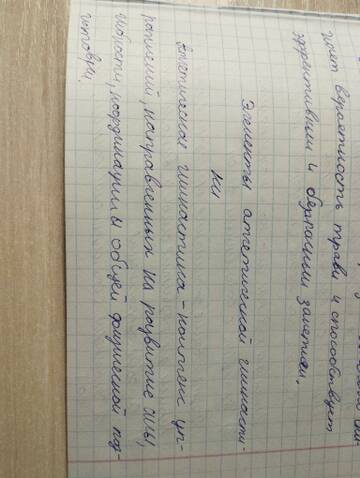 жает вероятность травм и способствует
эффективным и безопасным занятиям.
Элементы атлетической гимнасти-
ки
Атлетическая гимнастика - комплекс уп-
ражнений, направленных на развитие силы,
гибкости, координации и общей физической под-
готовки.